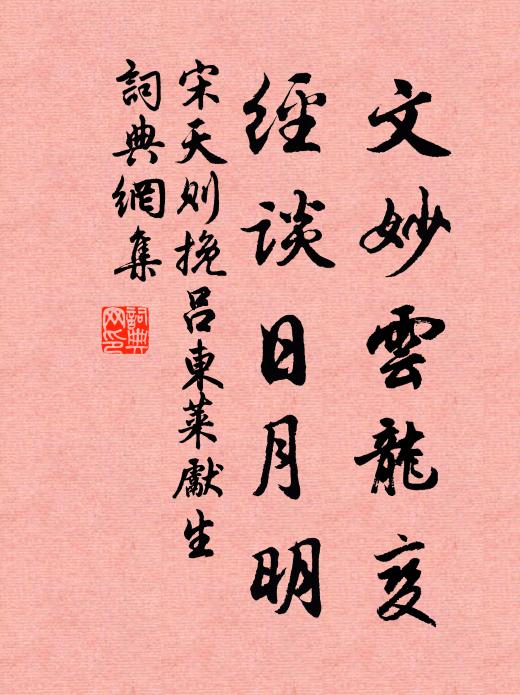 文妙雲龍变
經談日月明
宋天则挽呂東萊獻生
詞典網集
詞典网印